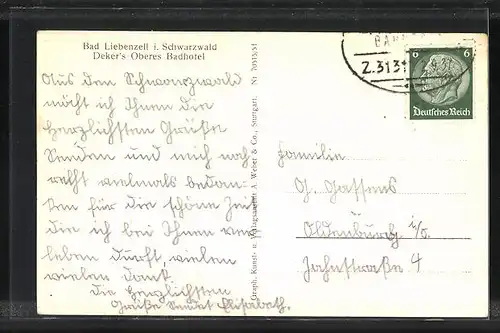 Bad Liebenzell i. Schwarzwald
Deker's Oberes Badhotel
Aus dem Schwarzwald
möcht ich Ihnen die
herzlichsten Grüße
senden und mich noch
recht vielmals bedan-
ken für die schöne Zeit
die ich bei Ihnen ver
leben durft, vielen
vielen Dank
die herzlichsten
Grüße sendet Elisabeth.
Graph. Kunst- u. Verlagsanstalt A. Weber & Co., Stuttgart. Nr
BAHNPOST
Z.313
6 6
Deutsches Reich
Familie
G. Gassens
Oldenburg i/O.
Jahnstraße 4